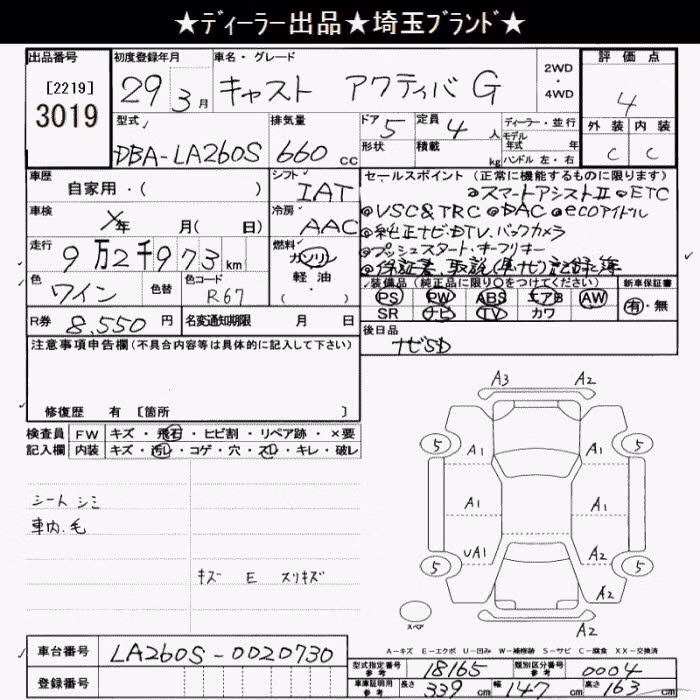 ★ディーラー出品★埼玉ブランド★
出品番号
[2219]
3019
初度登録年月
29 3月
車名・グレード
キャスト アクティバ G
2WD
・
4WD
評価点
4
外装 内装
C C
型式
DBA-LA260S
排気量
660 cc
ドア 5
形状
定員 4 人
積載 kg
ディーラー・並行
モデル
年式 年
ハンドル 左・右
車歴
自家用・( )
シフト
IAT
車検
年 月( 日)
冷房
AAC
走行
9万2千973km
燃料
ガソリン
軽油
( )
色
ワイン
色替
色コード
R67
R券 8,550円
名変通知期限 月 日
セールスポイント(正常に機能するものに限ります)
◎スマートアシストⅡ ◎ETC
◎VSC&TRC ◎DAC ◎ecoアイドル
◎純正ナビ・DTV.バックカメラ
◎プッシュスタート・キーフリー
◎保証書、取説(車.ナビ)記録簿
装備品(純正品に限り○をつけてください)
PS PW ABS エアB AW
SR ナビ TV カワ
新車保証書
有・無
後日品
ナビSD
注意事項申告欄(不具合内容等は具体的に記入して下さい)
修復歴 有 [箇所 ]
検査員 FW キズ・飛石・ヒビ割・リペア跡・×要
記入欄 内装 キズ・汚レ・コゲ・穴・スレ・キレ・破レ
シート シミ
車内.毛
キズ E スリキズ
A3 A2
5 A1 A1 5
A1 A1
UA1 A2
5 5
A2
A2
スペア
A-キズ E-エクボ U-凹み W-補修跡 S-サビ C-腐食 XX-交換済
車台番号 LA260S-0020730
登録番号
型式指定番号
参考 18165
類別区分番号
参考 0004
車庫証明用
参考 長さ 339cm 幅 147cm 高さ 163cm